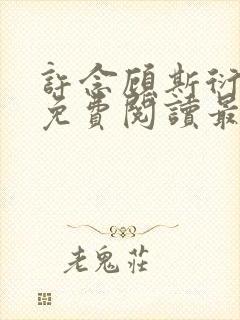 許念顧斯衍
免費閱讀最
老鬼莊